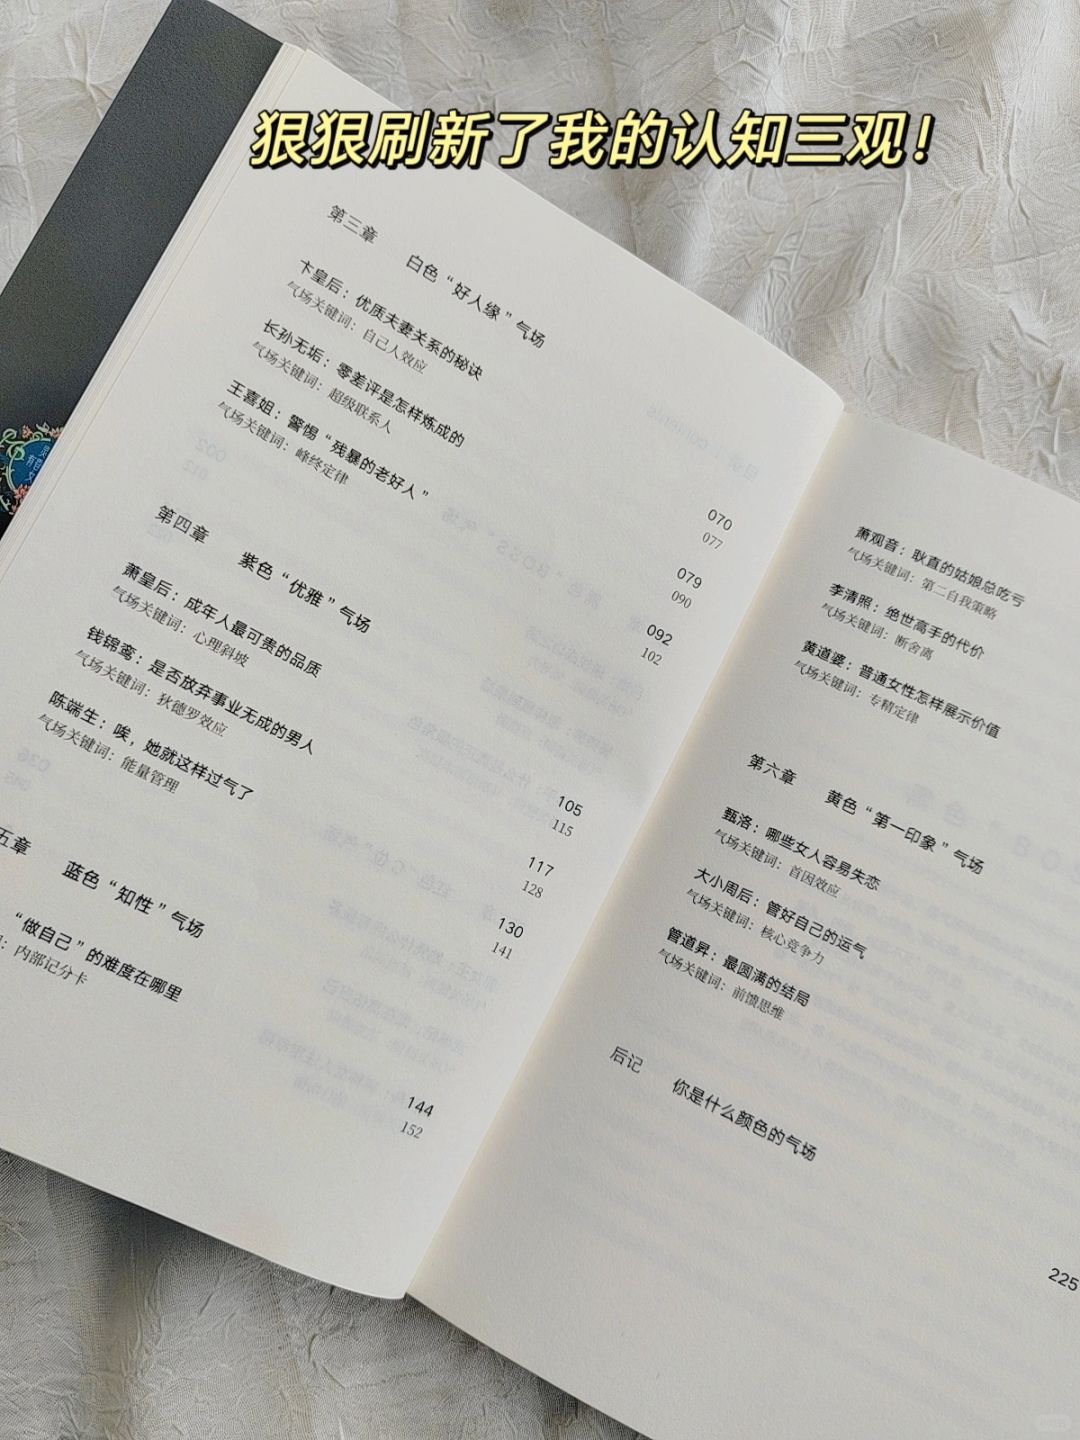 狠狠刷新了我的认知三观！
第三章 白色“好人缘”气场
卞皇后：优质夫妻关系的秘诀 070
气场关键词：自己人效应 077
长孙无垢：零差评是怎样炼成的 079
气场关键词：超级联系人 090
王喜姐：警惕“残暴的老好人” 092
气场关键词：峰终定律 102
第四章 紫色“优雅”气场
萧皇后：成年人最可贵的品质 105
气场关键词：心理斜坡 115
钱锦鸾：是否放弃事业无成的男人 117
气场关键词：狄德罗效应 128
陈端生：唉，她就这样过气了 130
气场关键词：能量管理 141
五章 蓝色“知性”气场
“做自己”的难度在哪里 144
：内部记分卡 152
萧观音：耿直的姑娘总吃亏
气场关键词：第二自我策略
李清照：绝世高手的代价
气场关键词：断舍离
黄道婆：普通女性怎样展示价值
气场关键词：专精定律
第六章 黄色“第一印象”气场
甄洛：哪些女人容易失恋
气场关键词：首因效应
大小周后：管好自己的运气
气场关键词：核心竞争力
管道昇：最圆满的结局
气场关键词：前馈思维
后记 你是什么颜色的气场
225